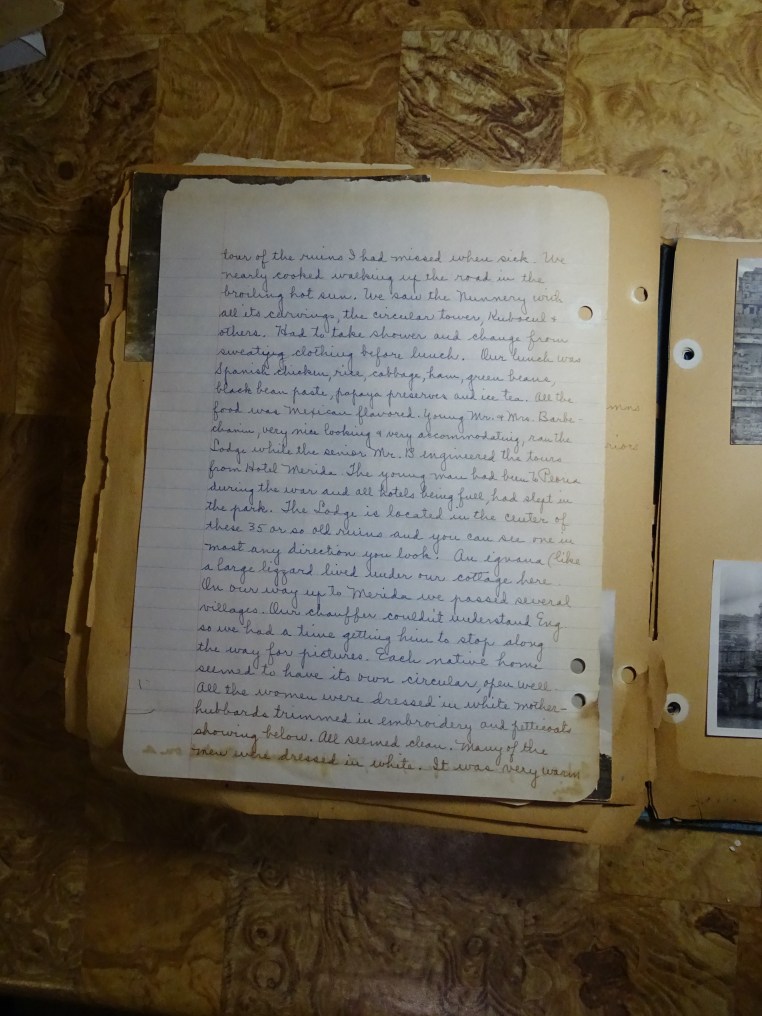 tour of the ruins I had missed when sick. We
nearly cooked walking up the road in the
broiling hot sun. We saw the Nunnery with
all its carvings, the circular tower, Kubocul &
others. Had to take shower and change from
sweating clothing before lunch. Our lunch was
Spanish chicken, rice, cabbage, ham, green beans,
black bean paste, papaya preserves and ice tea. All the
food was Mexican flavored. Young Mr. & Mrs. Barbe-
chanin, very nice looking & very accommodating, ran the
Lodge while the senior Mr. B engineered the tours
from Hotel Merida. The young man had been to Peoria
during the war and all hotels being full, had slept in
the park. The Lodge is located in the center of
these 35 or so old ruins and you can see one in
most any direction you look. An iguana (like
a large lizzard lived under our cottage here.
On our way up to Merida we passed several
villages. Our chauffer couldn't understand Eng
so we had a time getting him to stop along
the way for pictures. Each native home
seemed to have its own circular, open well.
All the women were dressed in white mother-
hubbards trimmed in embroidery and petticoats
showing below. All seemed clean. Many of the
men were dressed in white. It was very warm